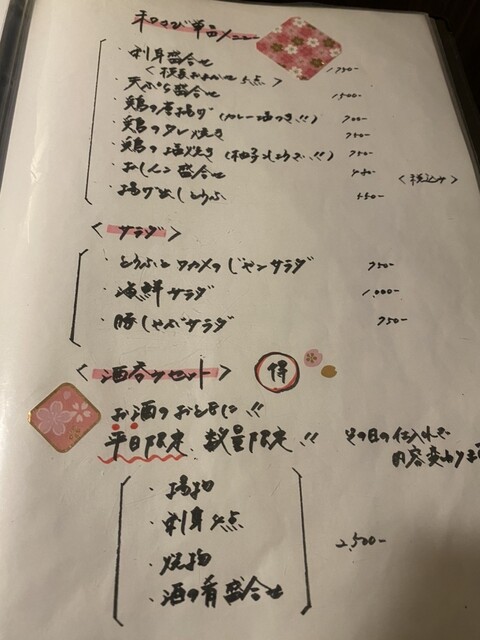 和さび 単品メニュー
・刺身盛合せ 1,750-
＜板長おまかせ 5点＞
・天ぷら盛合せ 1500-
・鶏の唐揚げ (カレー塩つき!!) 700-
・鶏のタレ焼き 750-
・鶏の塩焼き (柚子こしょう!!) 750-
・おしんこ盛合せ
・揚げ出しとうふ 550-
＜税込み＞
＜サラダ＞
・とうふとワカメのじゃこサラダ 750-
・海鮮サラダ 1,000-
・豚しゃぶサラダ 750-
＜酒呑みセット＞ 得
お酒のおともに!!
平日限定、数量限定!! その日の仕入れで
内容変わりま
・揚物
・刺身 点
・焼物
・酒の肴盛合せ
2,500-